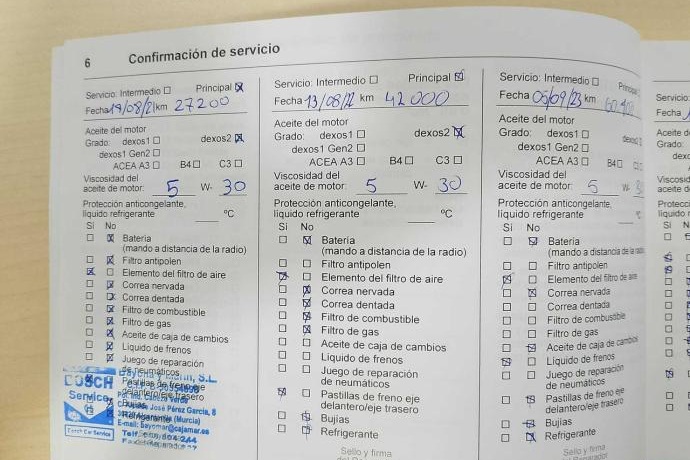 6 Confirmación de servicio
Servicio: Intermedio ☐ Principal ☒
Fecha 19/08/21 km 27200
Aceite del motor
Grado: dexos1 ☐ dexos2 ☒
dexos1 Gen2 ☐
ACEA A3 ☐ B4 ☐ C3 ☐
Viscosidad del
aceite de motor: 5 W- 30
Protección anticongelante,
líquido refrigerante °C
Sí No
Batería
(mando a distancia de la radio)
Filtro antipolen
Elemento del filtro de aire
Correa nervada
Correa dentada
Filtro de combustible
Filtro de gas
Aceite de caja de cambios
Líquido de frenos
Juego de reparación
de neumáticos
Pastillas de freno eje
delantero/eje trasero
Bujías
Refrigerante
BOSCH
Service
Bosch Car Service
S.L.
José Pérez García, 8
(Murcia)
E-mail: bayomar@cajamar.es
Servicio: Intermedio ☐ Principal ☒
Fecha 13/08/22 km 42000
Aceite del motor
Grado: dexos1 ☐ dexos2 ☒
dexos1 Gen2 ☐
ACEA A3 ☐ B4 ☐ C3 ☐
Viscosidad del
aceite de motor: 5 W- 30
Protección anticongelante,
líquido refrigerante °C
Sí No
Batería
(mando a distancia de la radio)
Filtro antipolen
Elemento del filtro de aire
Correa nervada
Correa dentada
Filtro de combustible
Filtro de gas
Aceite de caja de cambios
Líquido de frenos
Juego de reparación
de neumáticos
Pastillas de freno eje
delantero/eje trasero
Bujías
Refrigerante
Sello y firma
Servicio: Intermedio ☐
Fecha 05/09/23 km
Aceite del motor
Grado: dexos1 ☐
dexos1 Gen2 ☐
ACEA A3 ☐ B4 ☐
Viscosidad del
aceite de motor: 5 W-
Protección anticongelante,
líquido refrigerante
Sí No
Batería
(mando a distancia de la radio)
Filtro antipolen
Elemento del filtro de aire
Correa nervada
Correa dentada
Filtro de combustible
Filtro de gas
Aceite de caja de cambios
Líquido de frenos
Juego de reparación
de neumáticos
Pastillas de freno eje
delantero/eje trasero
Bujías
Refrigerante
Sello y firma
Servicio:
Fecha
Aceite de
Grado:
Sí N